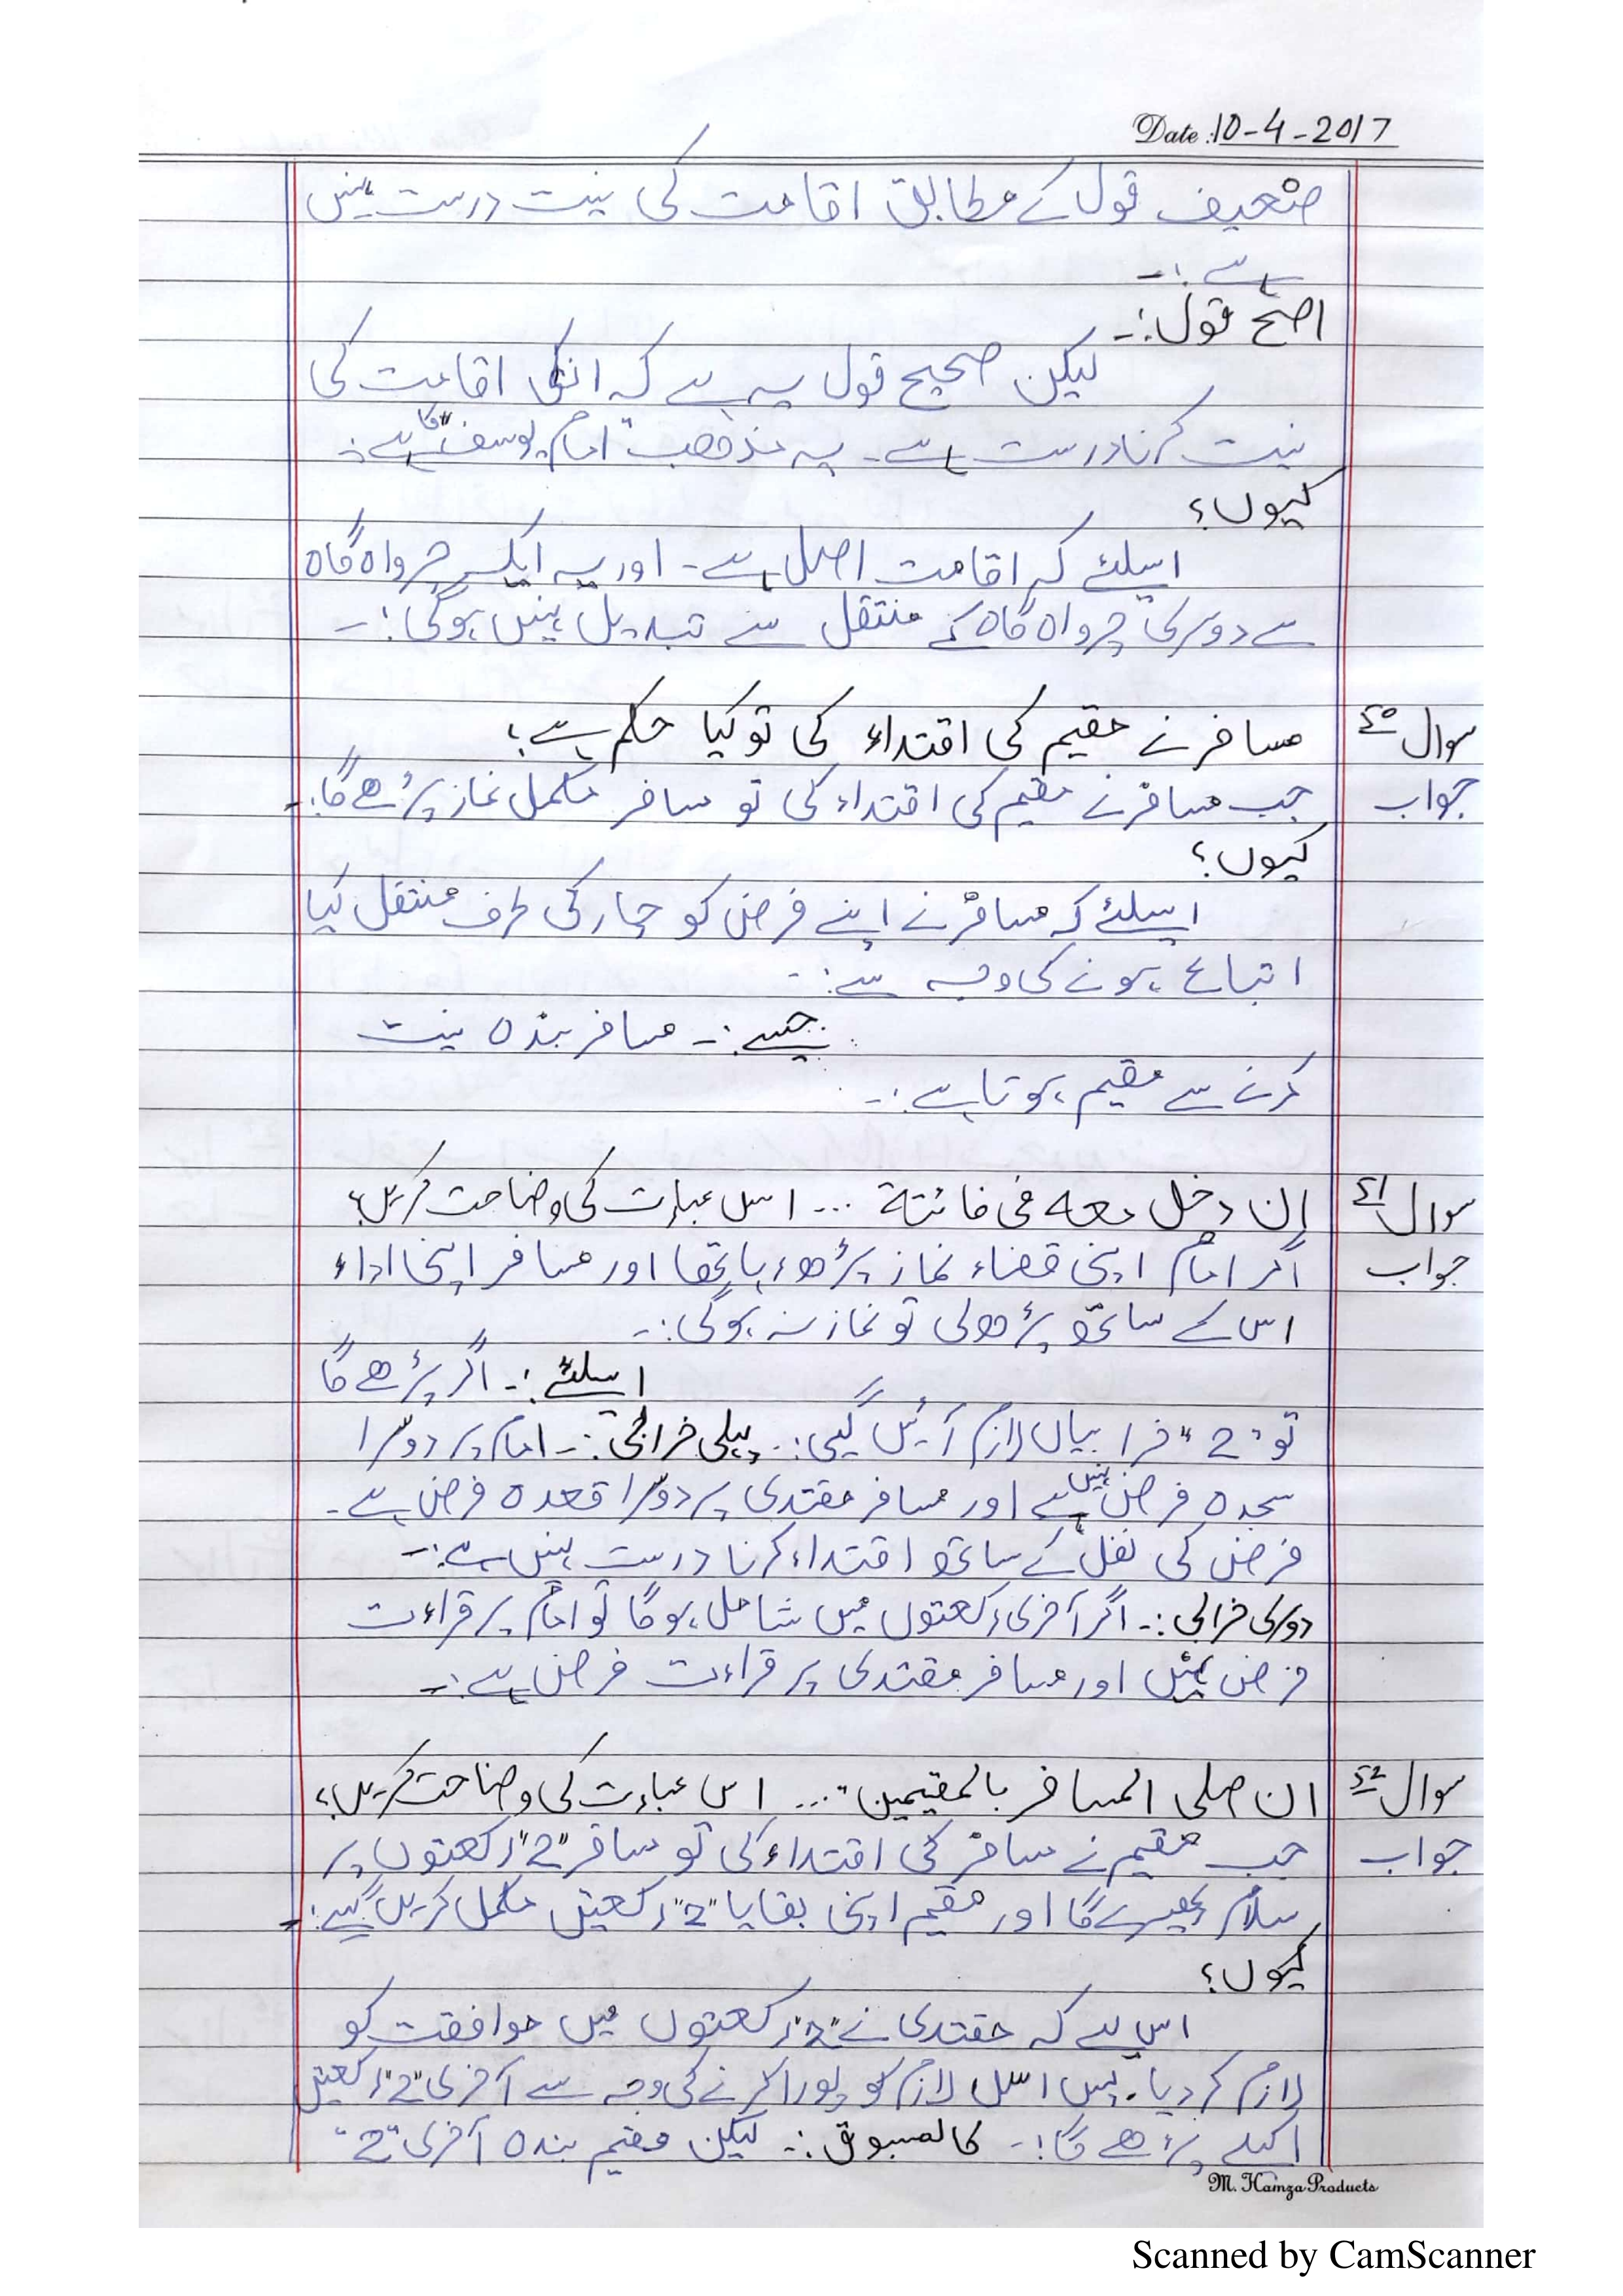 Date: 10-4-2017
ضعیف قول کے مطابق اقامت کی نیت درست نہیں
ہے :۔
اصح قول :۔
لیکن صحیح قول یہ ہے کہ انکی اقامت کی
نیت کرنا درست ہے۔ یہ مذھب "امام یوسف" کا ہے :۔
کیوں؟
اسلئے کہ اقامت اصل ہے۔ اور یہ ایک چرواہ گاہ
سے دوسری چرواہ گاہ کے منتقل سے تبدیل نہیں ہوگی :۔
سوال ٤٠ مسافر نے مقیم کی اقتداء کی تو کیا حکم ہے؟
جواب جب مسافر نے مقیم کی اقتداء کی تو مسافر مکمل نماز پڑھے گا :۔
کیوں؟
اسلئے کہ مسافر نے اپنے فرض کو چار کی طرف منتقل کیا
اتباع ہونے کی وجہ سے :۔
جیسے :۔ مسافر بندہ نیت
کرنے سے مقیم ہوتا ہے :۔
سوال ٤١ ان دخل معه فی فائتة ... اس عبارت کی وضاحت کریں؟
جواب اگر امام اپنی قضاء نماز پڑھ رہا تھا اور مسافر اپنی اداء
اس کے ساتھ پڑھ لی تو نماز نہ ہوگی :۔
اسلئے :۔ اگر پڑھے گا
تو "2" خرابیاں لازم آئیں گیں :۔ پہلی خرابی :۔ امام پر دوسرا
سجدہ فرض نہیں ہے اور مسافر مقتدی پر دوسرا قعدہ فرض ہے۔
فرض کی نفل کے ساتھ اقتداء کرنا درست نہیں ہے :۔
دوسری خرابی :۔ اگر آخری رکعتوں میں شامل ہوگا تو امام پر قراءت
فرض نہیں اور مسافر مقتدی پر قراءت فرض ہے :۔
سوال ٤٢ ان صلی المسافر بالمقیمین .... اس عبارت کی وضاحت کریں؟
جواب جب مقیم نے مسافر کی اقتداء کی تو مسافر "2" رکعتوں پر
سلام پھیرے گا اور مقیم اپنی بقایا "2" رکعتیں مکمل کریں گے :۔
کیوں؟
اس لیے کہ مقتدی نے "2" رکعتوں میں موافقت کو
لازم کر دیا۔ پس اسل لازم کو پورا کرنے کی وجہ سے آخری "2" رکعتیں
اکیلے پڑھے گا :۔ کالمسبوق :۔ لیکن مقیم بندہ آخری "2"
M. Hamza Products
Scanned by CamScanner